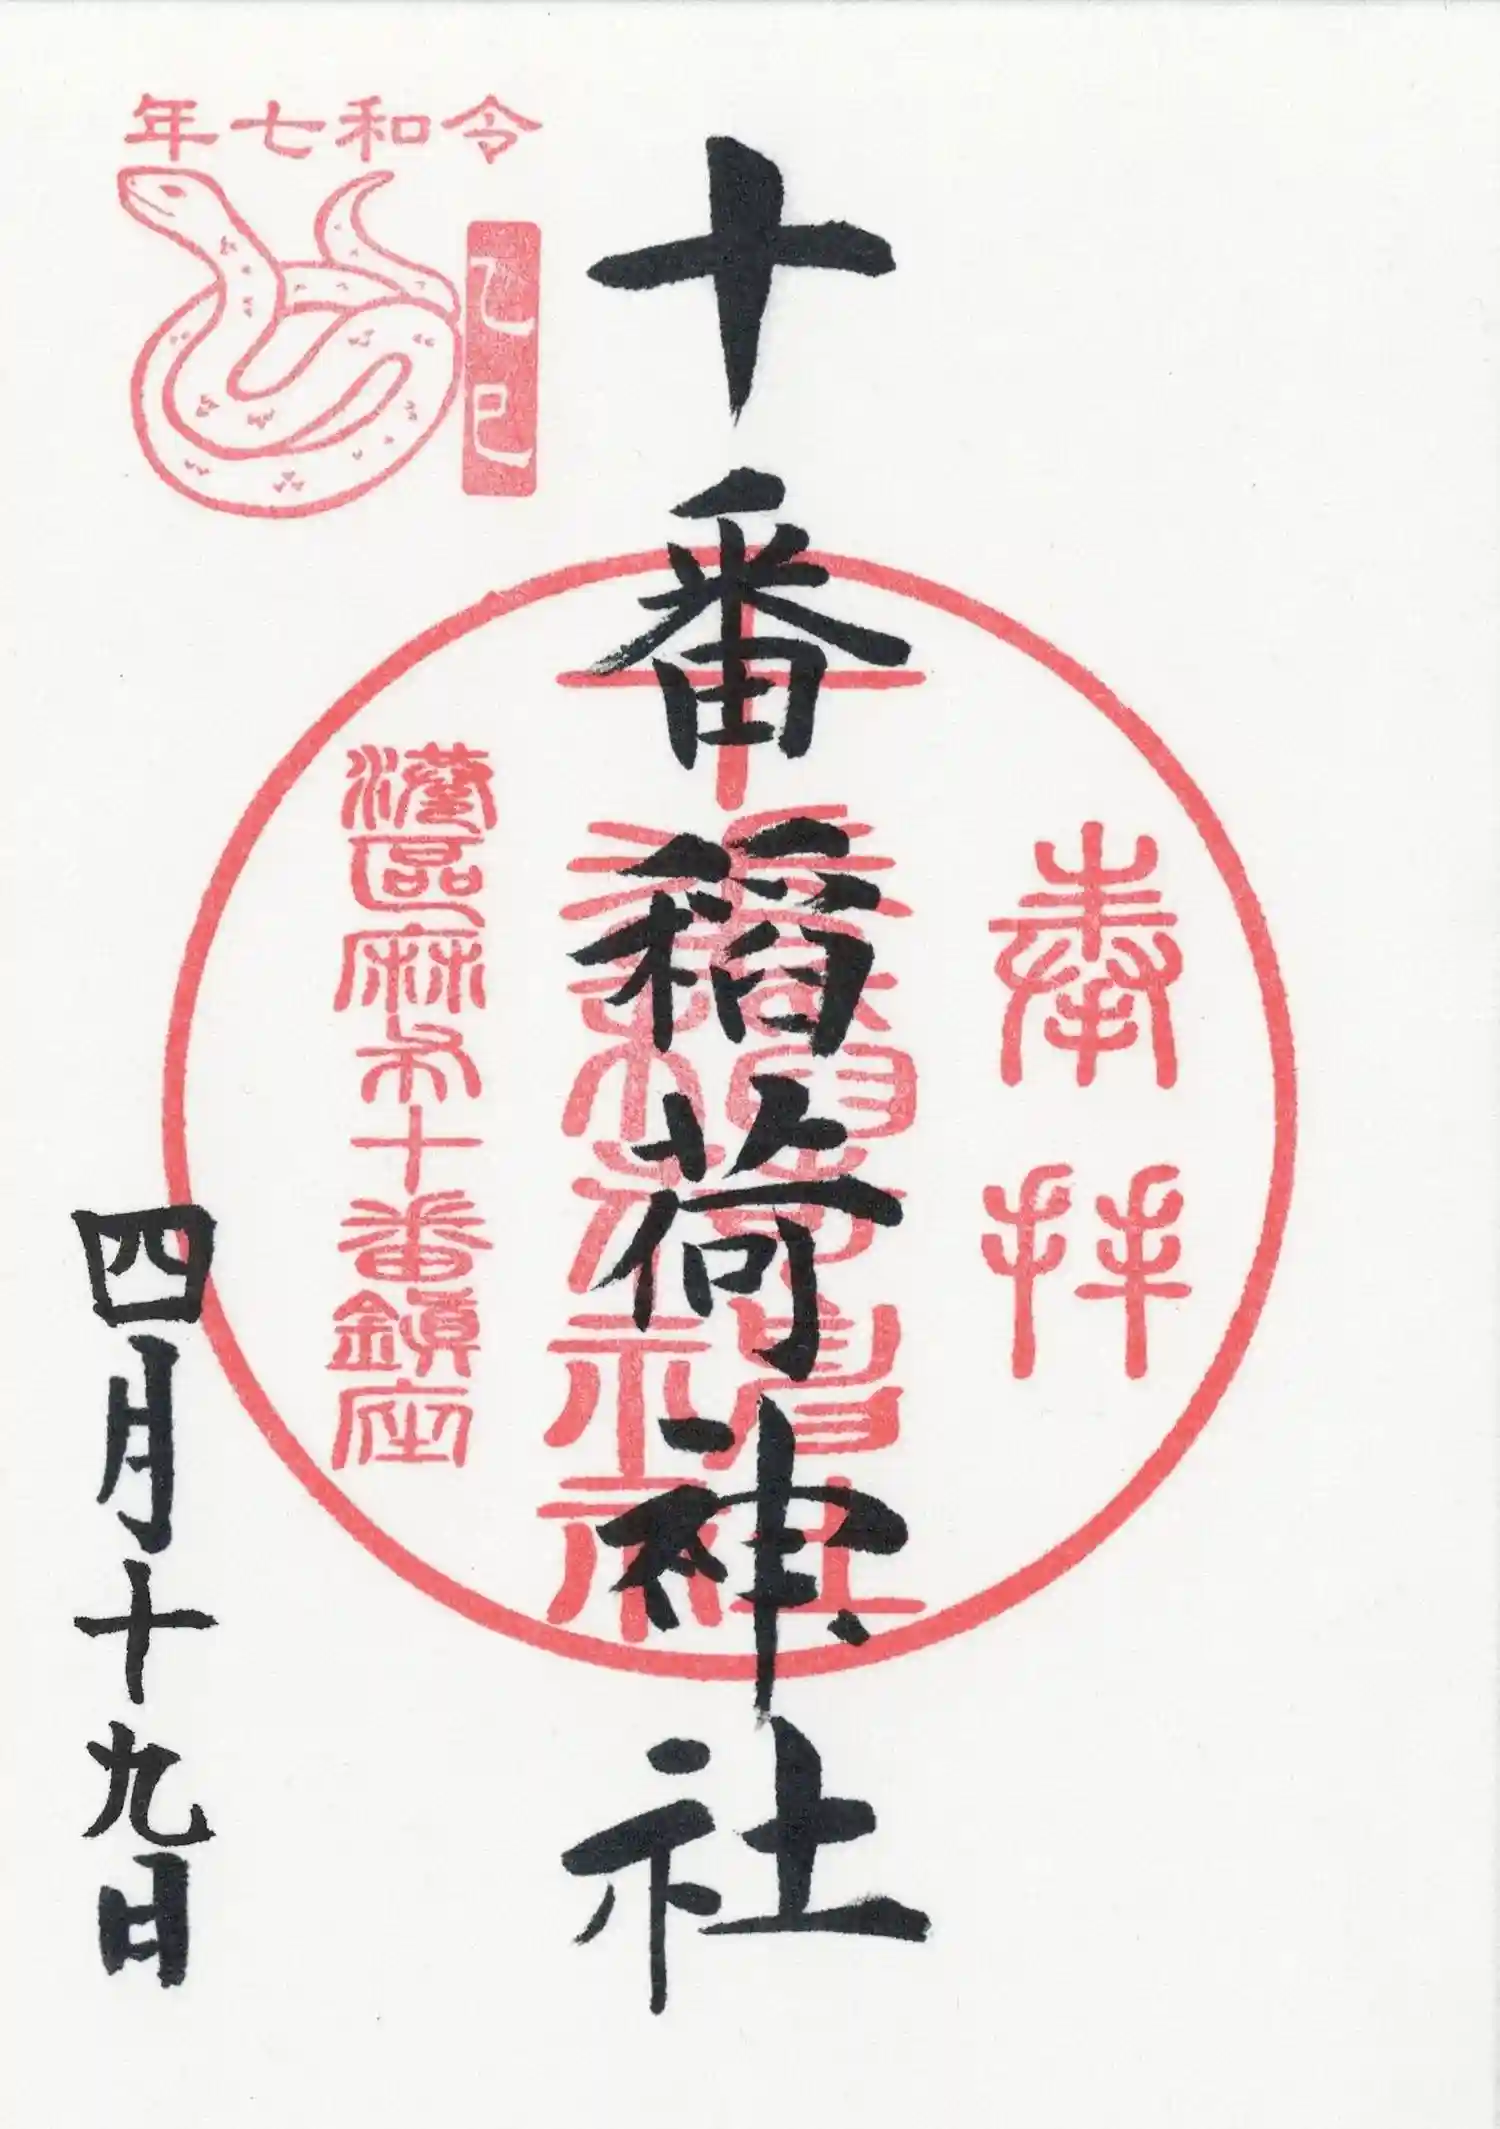 奉拝
十番稲荷神社
十番稲荷神社
港區麻布十番鎮座
令和七年
乙巳
四月十九日